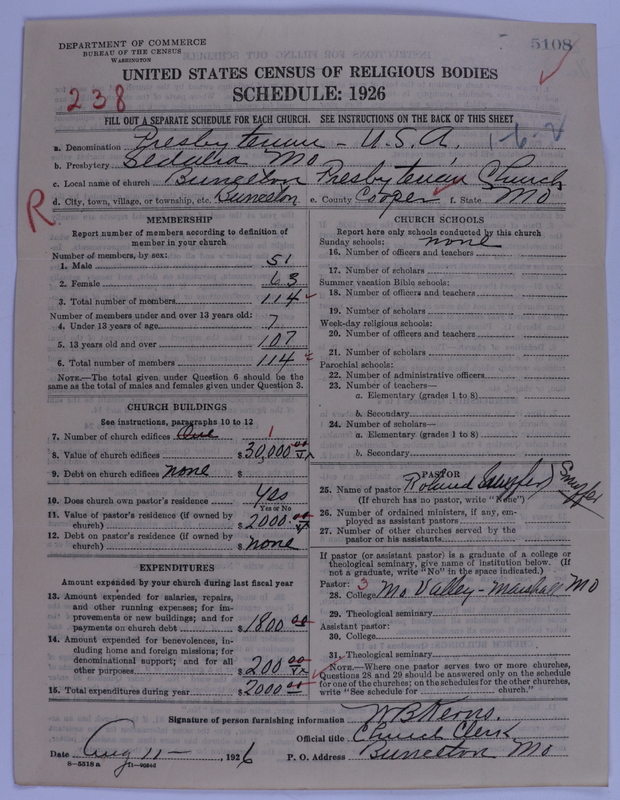 DEPARTMENT OF COMMERCE
BUREAU OF THE CENSUS
WASHINGTON
5108
UNITED STATES CENSUS OF RELIGIOUS BODIES
238
SCHEDULE: 1926
FILL OUT A SEPARATE SCHEDULE FOR EACH CHURCH. SEE INSTRUCTIONS ON THE BACK OF THIS SHEET
a. Denomination Presbyterian - U.S.A. 1-6-2
b. Presbytery Sedalia Mo
c. Local name of church Bunceton Presbyterian Church
d. City, town, village, or township, etc. Bunceton e. County Cooper f. State Mo
R
MEMBERSHIP
Report number of members according to definition of member in your church
Number of members, by sex:
1. Male 51
2. Female 63
3. Total number of members 114
Number of members under and over 13 years old:
4. Under 13 years of age 7
5. 13 years old and over 107
6. Total number of members 114
NOTE.—The total given under Question 6 should be the same as the total of males and females given under Question 3.
CHURCH BUILDINGS
See instructions, paragraphs 10 to 12
7. Number of church edifices One 1
8. Value of church edifices $30,000.00
9. Debt on church edifices none $
10. Does church own pastor's residence Yes
Yes or No
11. Value of pastor's residence (if owned by church) $2000.00
12. Debt on pastor's residence (if owned by church) $ none
EXPENDITURES
Amount expended by your church during last fiscal year
13. Amount expended for salaries, repairs, and other running expenses; for improvements or new buildings; and for payments on church debt $1800.00
14. Amount expended for benevolences, including home and foreign missions; for denominational support; and for all other purposes $200.00
15. Total expenditures during year $2000.00
CHURCH SCHOOLS
Report here only schools conducted by this church
Sunday schools: none
16. Number of officers and teachers
17. Number of scholars
Summer vacation Bible schools:
18. Number of officers and teachers
19. Number of scholars
Week-day religious schools:
20. Number of officers and teachers
21. Number of scholars
Parochial schools:
22. Number of administrative officers
23. Number of teachers—
a. Elementary (grades 1 to 8)
b. Secondary
24. Number of scholars—
a. Elementary (grades 1 to 8)
b. Secondary
PASTOR
25. Name of pastor Roland
(If church has no pastor, write "None")
26. Number of ordained ministers, if any, employed as assistant pastors
27. Number of other churches served by the pastor or his assistants
If pastor (or assistant pastor) is a graduate of a college or theological seminary, give name of institution below. (If not a graduate, write "No" in the space indicated.)
Pastor: 3
28. College Mo Valley - Marshall Mo
29. Theological seminary
Assistant pastor:
30. College
31. Theological seminary
NOTE.—Where one pastor serves two or more churches, Questions 28 and 29 should be answered only on the schedule for one of the churches; on the schedules for the other churches, write "See schedule for church."
Signature of person furnishing information W B Kerns.
Official title Church Clerk
Date Aug 11 - , 1926 P. O. Address Bunceton Mo
8-5518 a